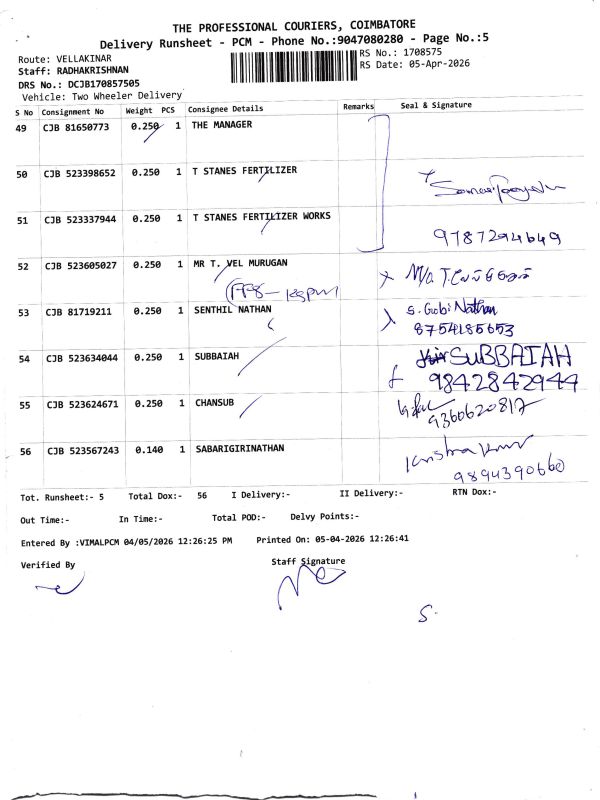 THE PROFESSIONAL COURIERS, COIMBATORE
Delivery Runsheet - PCM - Phone No.:9047080280 - Page No.:5
Route: VELLAKINAR
RS No.: 1708575
Staff: RADHAKRISHNAN
RS Date: 05-Apr-2026
DRS No.: DCJB170857505
Vehicle: Two Wheeler Delivery
S No Consignment No Weight PCS Consignee Details Remarks Seal & Signature
49 CJB 81650773 0.250 1 THE MANAGER
50 CJB 523398652 0.250 1 T STANES FERTILIZER
51 CJB 523337944 0.250 1 T STANES FERTILIZER WORKS
9787294649
52 CJB 523605027 0.250 1 MR T. VEL MURUGAN
53 CJB 81719211 0.250 1 SENTHIL NATHAN S. Gobi Nathan
8754185653
54 CJB 523634044 0.250 1 SUBBAIAH SUBBAIAH
9842842944
55 CJB 523624671 0.250 1 CHANSUB
9360620817
56 CJB 523567243 0.140 1 SABARIGIRINATHAN Krishna Kumar
9894390660
Tot. Runsheet:- 5 Total Dox:- 56 I Delivery:- II Delivery:- RTN Dox:-
Out Time:- In Time:- Total POD:- Delvy Points:-
Entered By :VIMALPCM 04/05/2026 12:26:25 PM Printed On: 05-04-2026 12:26:41
Verified By Staff Signature
S.